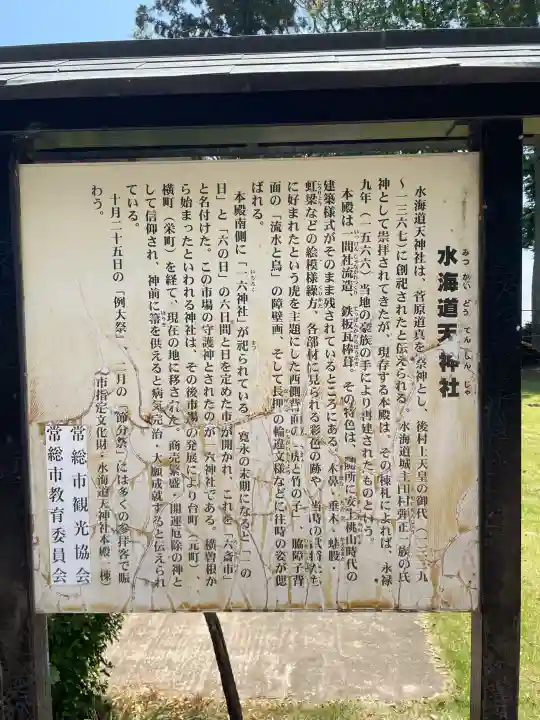 水海道天神社
みつかいどうてんじんじゃ
水海道天神社は、菅原道真を祭神とし、後村上天皇の御代(一三三九
~一三六七)に創祀されたと伝えられる。水海道城主田村弾正一族の氏
神として崇拝されてきたが、現存する本殿は、その棟札によれば、永禄
九年(一五六六)当地の豪族の手により再建されたものという。
本殿は、一間社流造、鉄板瓦棒葺、その特色は、随所に安土桃山時代の
建築様式がそのまま残されているところにある。木鼻・垂木・蟇股・
虹梁などの絵模様繰方、各部材に見られる彩色の跡や、当時の武将たち
に好まれたという虎を主題にした西側背面の「虎と竹の子」、脇障子背
面の「流水と鳥」の障壁画、そして長押の輪違文様などに往時の姿が偲
ばれる。
本殿南側に「一六神社」が祀られている。寛永の末期になると「一の
日」と「六の日」の六日間と日を定めた市が開かれ、これを「六斎市」
と名付けた。この市場の守護神とされたのが一六神社である。横曽根か
ら始まったといわれる神社は、その後市場の発展により台町(元町)、
横町(栄町)を経て、現在の地に移された。商売繁盛・開運厄除の神と
して信仰され、神前に箒を供えると病気完治・大願成就すると伝えられ
ている。
十月二十五日の「例大祭」、二月の「節分祭」には多くの参拝客で賑
わう。
(市指定文化財・水海道天神社本殿一棟)
常総市観光協会
常総市教育委員会